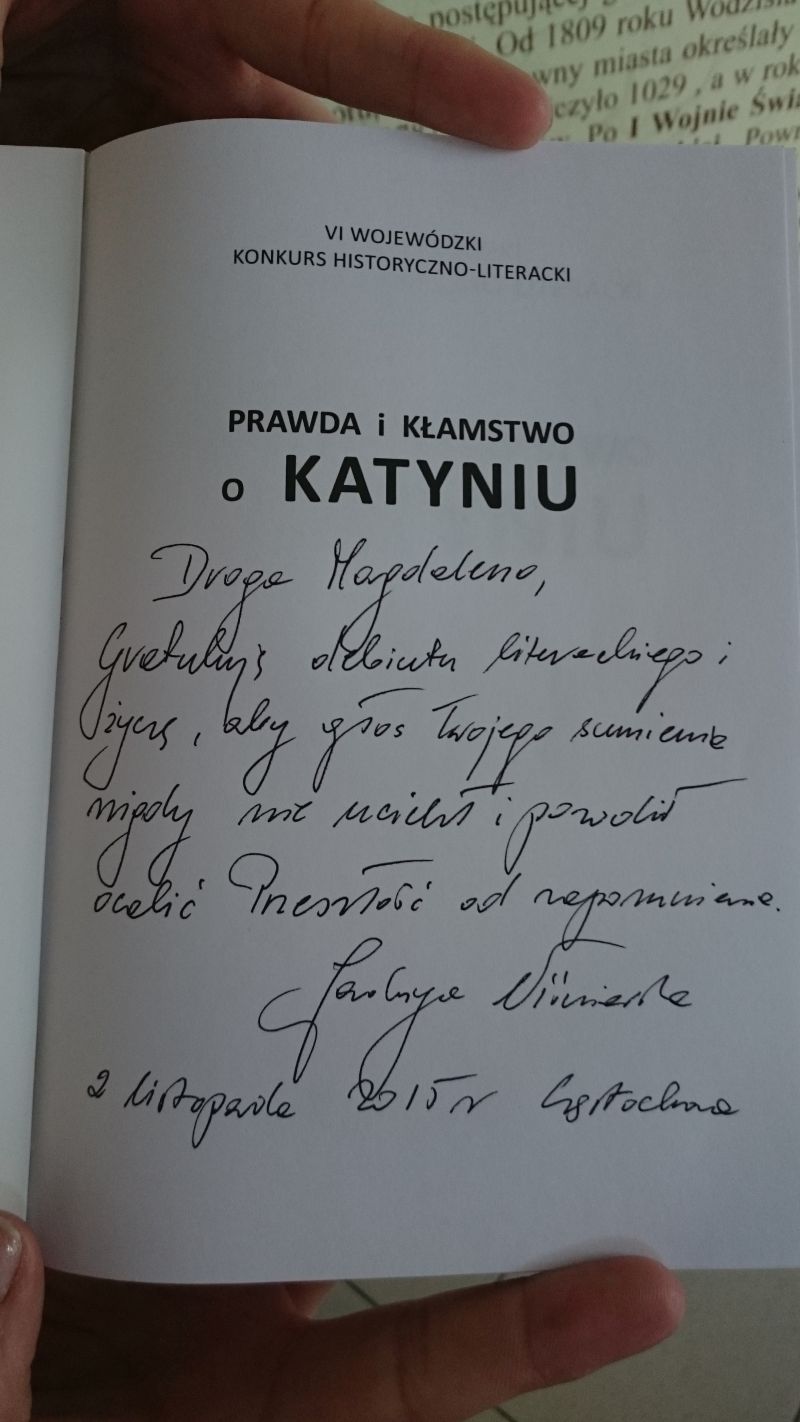 postępującej
Od 1809 roku Wodzisł
wny miasta określały
czyło 1029 , a w rok
Po I Wojnie Świa
VI WOJEWÓDZKI
KONKURS HISTORYCZNO-LITERACKI
PRAWDA i KŁAMSTWO
o KATYNIU
Droga Magdaleno,
Gratuluję debiutu literackiego i
życzę, aby głos Twojego sumienia
nigdy nie ucichł i pozwolił
ocalić Przeszłość od zapomnienia.
2 listopada 2015 r Częstochowa